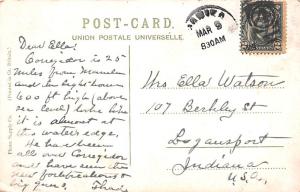 POST-CARD.
UNION POSTALE UNIVERSELLE.
MANILA
MAR 9
830AM
Dear Ella:
Corregidor is 25
miles from Manila
and
600 ft high (above
sea level) looks like
it is almost at
the waters edge.
He has been
all over Corregidor
and have seen the
new fortifications &
big guns.
Mrs Ella Watson
107 Berkley St
Logansport
Indiana
U.S.A.